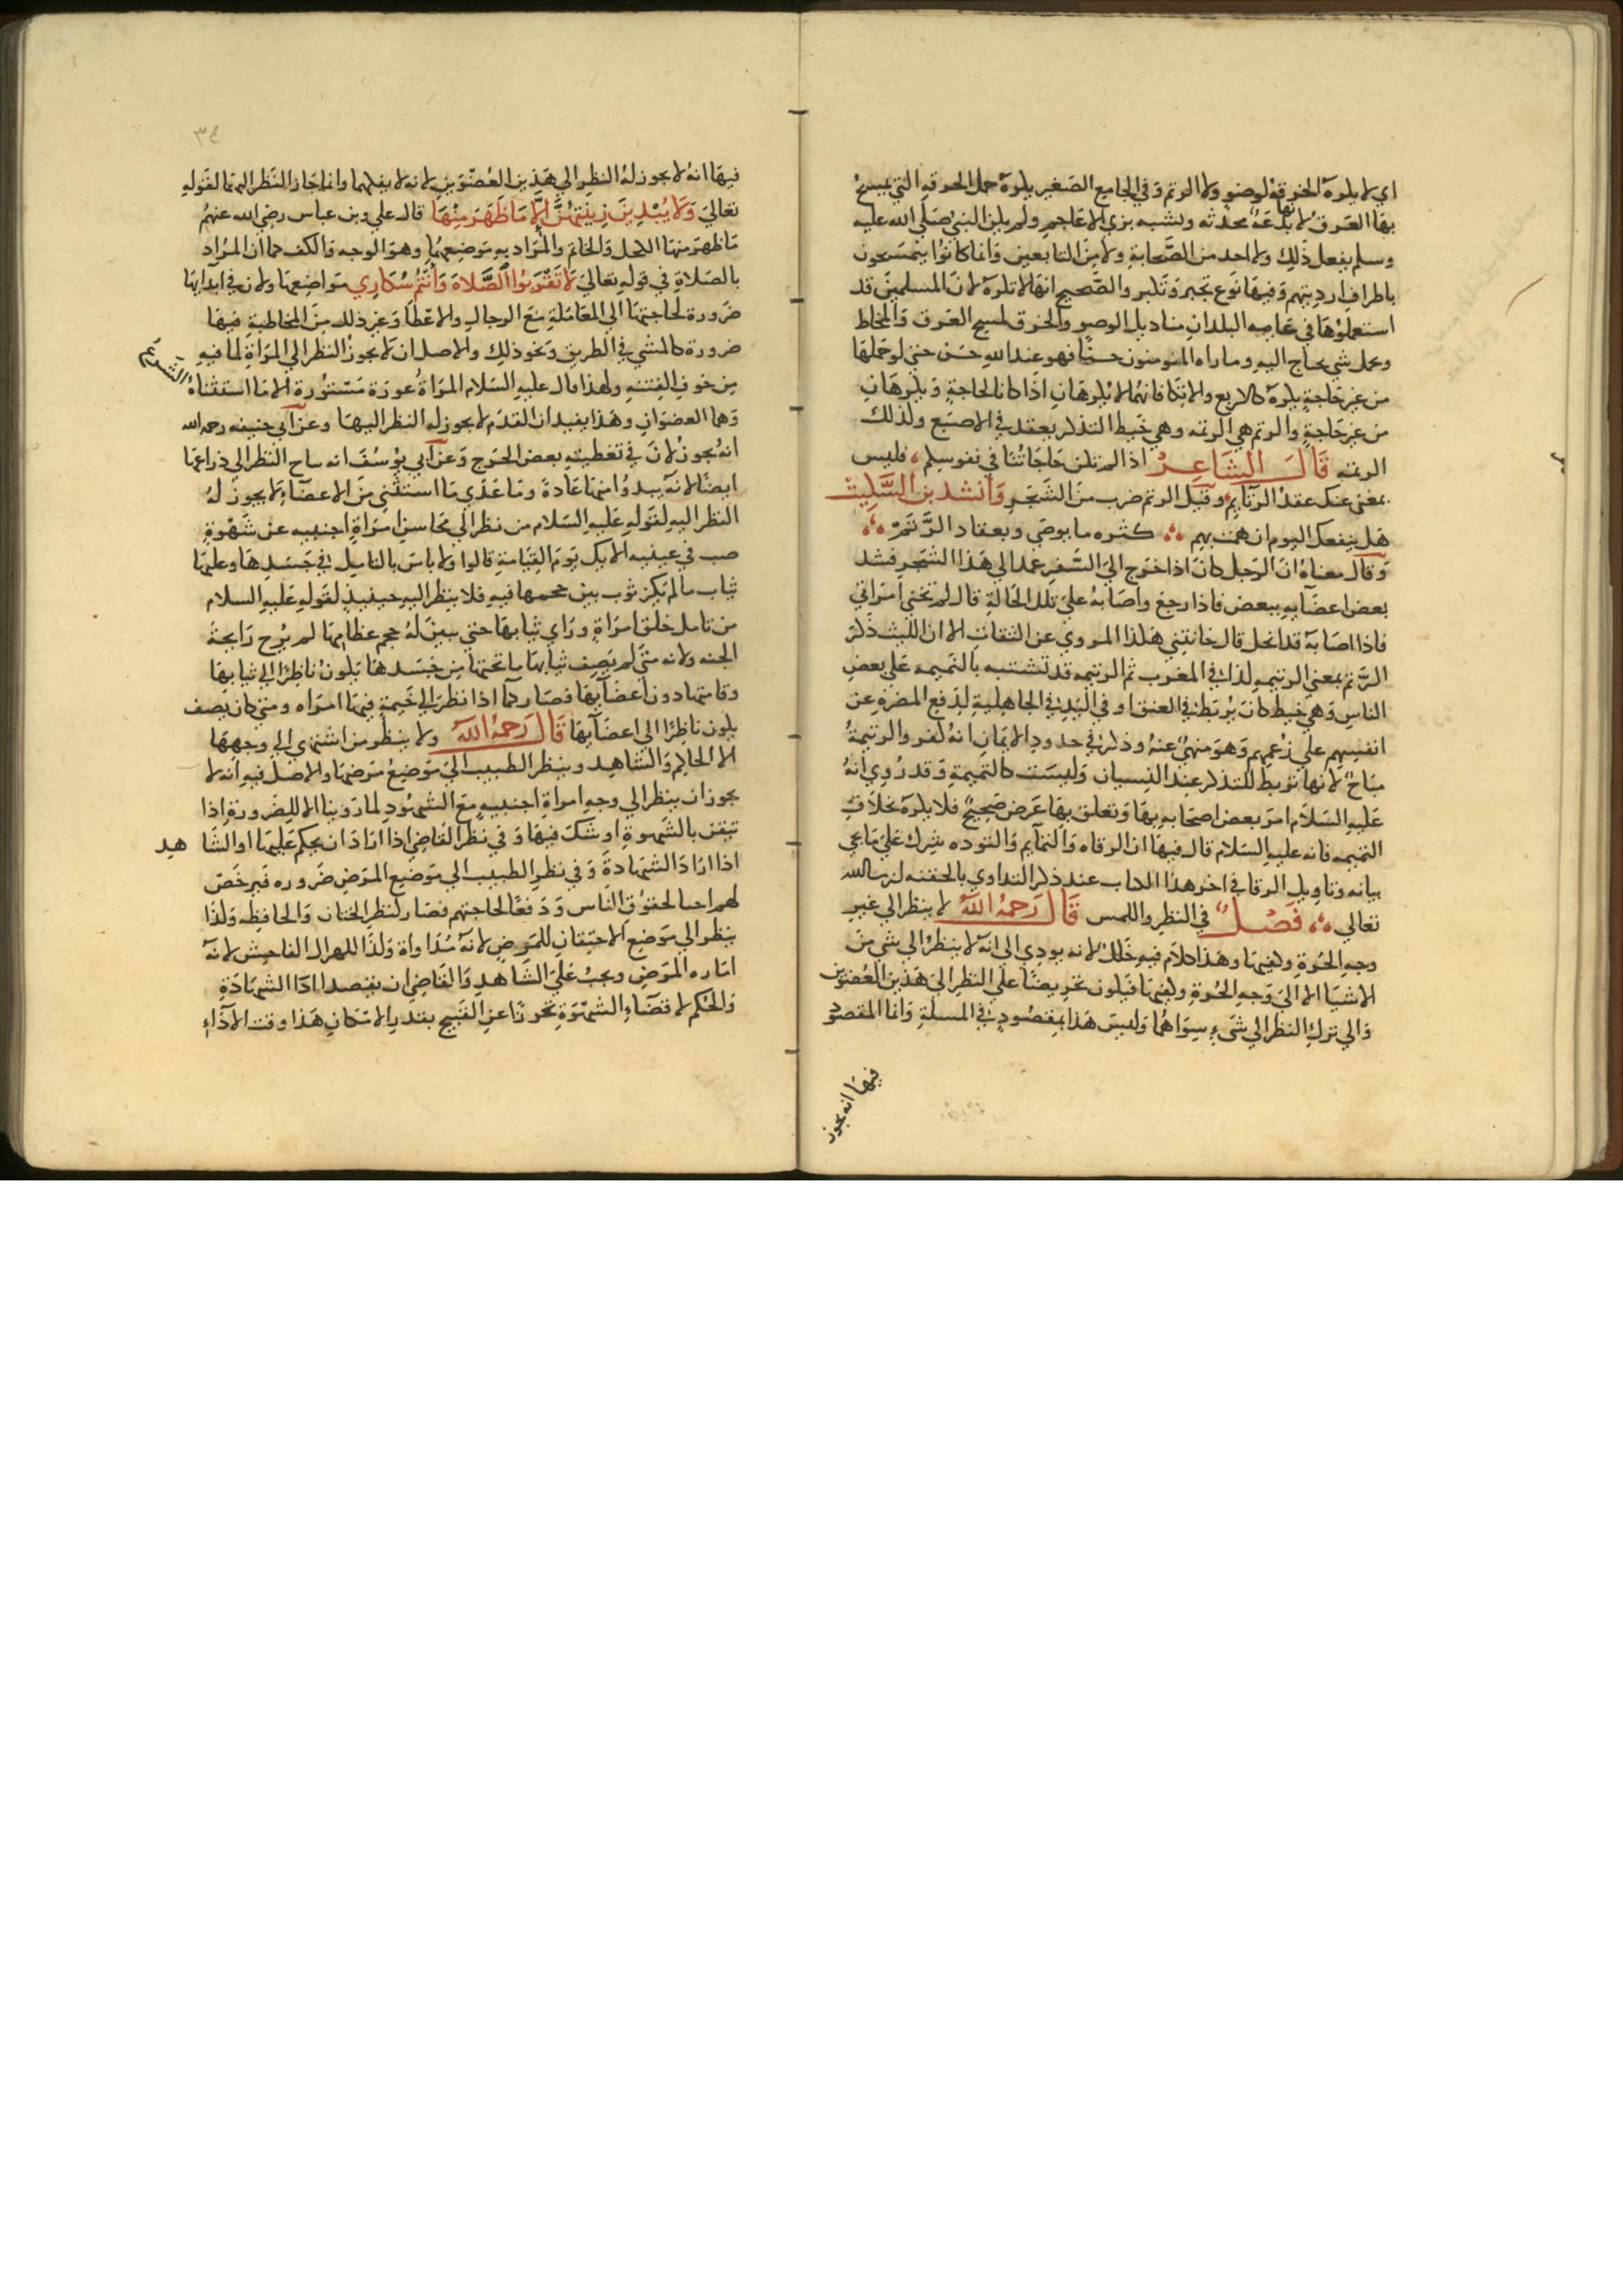 اي لا يكره الخرقة لوضوء ولا الرتم وفي الجامع الصغير يكره حمل الخرقة التي يمسح
بها العرق لانها بدعة محدثة وتشبه بزي الاعاجم ولم يكن النبي صلى الله عليه
وسلم يفعل ذلك ولا احد من الصحابة ولا من التابعين وانما كانوا يتمسحون
باطراف ارديتهم وفيها نوع تجبر وتكبر والصحيح انها لا تكره لان المسلمين قد
استعملوها في عامة البلدان مناديل الوضوء والخرق لمسح العرق والمخاط
وحمل شي يحتاج اليه وما راه المومنون حسنا فهو عند الله حسن حتى لو حملها
من غير حاجة يكره كالاربع والاتكا فانهما لا يكرهان اذا كانا لحاجة ويكرهان
من غير حاجة والرتم هي الرتمة وهي خيط التذكر يعقد في الاصبع ولذلك
الرتمة قال الشاعر اذا لم تكن حاجاتنا في نفوسكم فليس
بمغن عنك عقد الرتائم وقيل الرتم ضرب من الشجر وانشد بن السكيت
هل ينفعك اليوم ان همت بهم كثره ما توصي وتعقاد الرتم
وقال معناه ان الرجل كان اذا خرج الى السفر عمد الى هذا الشجر فشد
بعض اعضائه ببعض فاذا رجع واصابه على تلك الحالة قال لم تخني امراتي
فاذا اصابه قد انحل قال خانتني هكذا المروي عن الثقات الا ان الليث ذكر
الرتم بمعنى الرتيمة كذا في المغرب ثم الرتيمة قد تشتبه بالتميمة على بعض
الناس وهي خيط كان يربط في العنق او في اليد في الجاهلية لدفع المضرة عن
انفسهم على زعمهم وهو منهي عنه وذكر في حدود الايمان انه كفر والرتيمة
مباح لانها تربط للتذكر عند النسيان وليست كالتميمة وقد روي انه
عليه السلام امر بعض اصحابه بها وتعلق بها غرض صحيح فلا يكره بخلاف
التميمة فانه عليه السلام قال فيها ان الرقاه والتمايم والتوده شرك على ما يجي
بيانه وتاويل الرقا في اخر هذا الكتاب عند ذكر التداوي بالحقنة ان شا الله
تعالى فصل في النظر واللمس قال رحمه الله لا ينظر الى غير
وجه الحرة وكفيها وهذا كلام فيه خلل لانه يودي الى انه لا ينظر الى شي من
الاشيا الا الى وجه الحرة وكفيها فيكون تحريضا على النظر الى هذين العضوين
والى ترك النظر الى شيء سواهما وليس هذا بمقصود في المسلة وانما المقصود
فيها انه يجوز
٣٤
فيها انه لا يجوز له النظر الى هذين العضوين لانه لا يفلهما وانما جاز النظر اليهما لقوله
تعالى ولا يبدين زينتهن الا ما ظهر منها قال علي وبن عباس رضي الله عنهم
ما ظهر منها الكحل والخاتم والمراد به موضعهما وهو الوجه والكف كما ان المراد
بالصلاة في قوله تعالى لا تقربوا الصلاة وانتم سكارى مواضعها ولان في ابدايها
ضرورة لحاجتها الى المعاملة مع الرجال والاعطا وغير ذلك من المخاطبة فيها
ضرورة كالمشي في الطريق ونحو ذلك والاصل ان لا يجوز النظر الى المراة لما فيه
من خوف الفتنة ولهذا قال عليه السلام المراة عورة مستورة الا ما استثناه الشرع
وهما العضوان وهذا يفيد ان القدم لا يجوز له النظر اليها وعن ابي حنيفه رحمه الله
انه يجوز لان في تغطيته بعض الحرج وعن ابي يوسف انه يباح النظر الى ذراعها
ايضا لانه يبدوا منها عادة وما عدي ما استثني من الاعضاء لا يجوز له
النظر اليه لقوله عليه السلام من نظر الى محاسن امراة اجنبيه عن شهوة
صب في عينيه الانك يوم القيامة قالوا ولا باس بالتامل في جسدها وعليها
ثياب ما لم يكن ثوب يبين حجمها فيه فلا ينظر اليه حينيذ لقوله عليه السلام
من تامل خلق امراة وراي ثيابها حتى يبين له حجم عظامها لم يرح رايحة
الجنه ولانه متى لم يصف ثيابها ما تحتها من جسدها يكون ناظرا الى ثيابها
وقامتها دون اعضائها فصار كما اذا نظر الى خيمة فيها امراه ومتى كان يصف
يكون ناظرا الى اعضائها قال رحمه الله ولا ينظر من اشتهى الى وجهها
الا الحاكم والشاهد وينظر الطبيب الى موضع مرضها والاصل فيه انه لا
يجوز ان ينظر الى وجه امراة اجنبيه مع الشهوة لما روينا الا للضرورة اذا
تيقن بالشهوة او شك فيها وفي نظر القاضي اذا اراد ان يحكم عليها او الشا هد
اذا اراد الشهادة وفي نظر الطبيب الى موضع المرض ضروره فيرخص
لهم احيا لحقوق الناس ودفعا لحاجتهم فصار كنظر الختان والحافظه وكذا
ينظر الى موضع الاحتقان للمريض لانه مداواة وكذا للهزال الفاحش لانه
اماره المرض ويجب على الشاهد والقاضي ان يقصد ادا الشهادة
والحكم لا قضاء الشهوة تحرزا عن القبيح بقدر الامكان هذا وقت الاداء